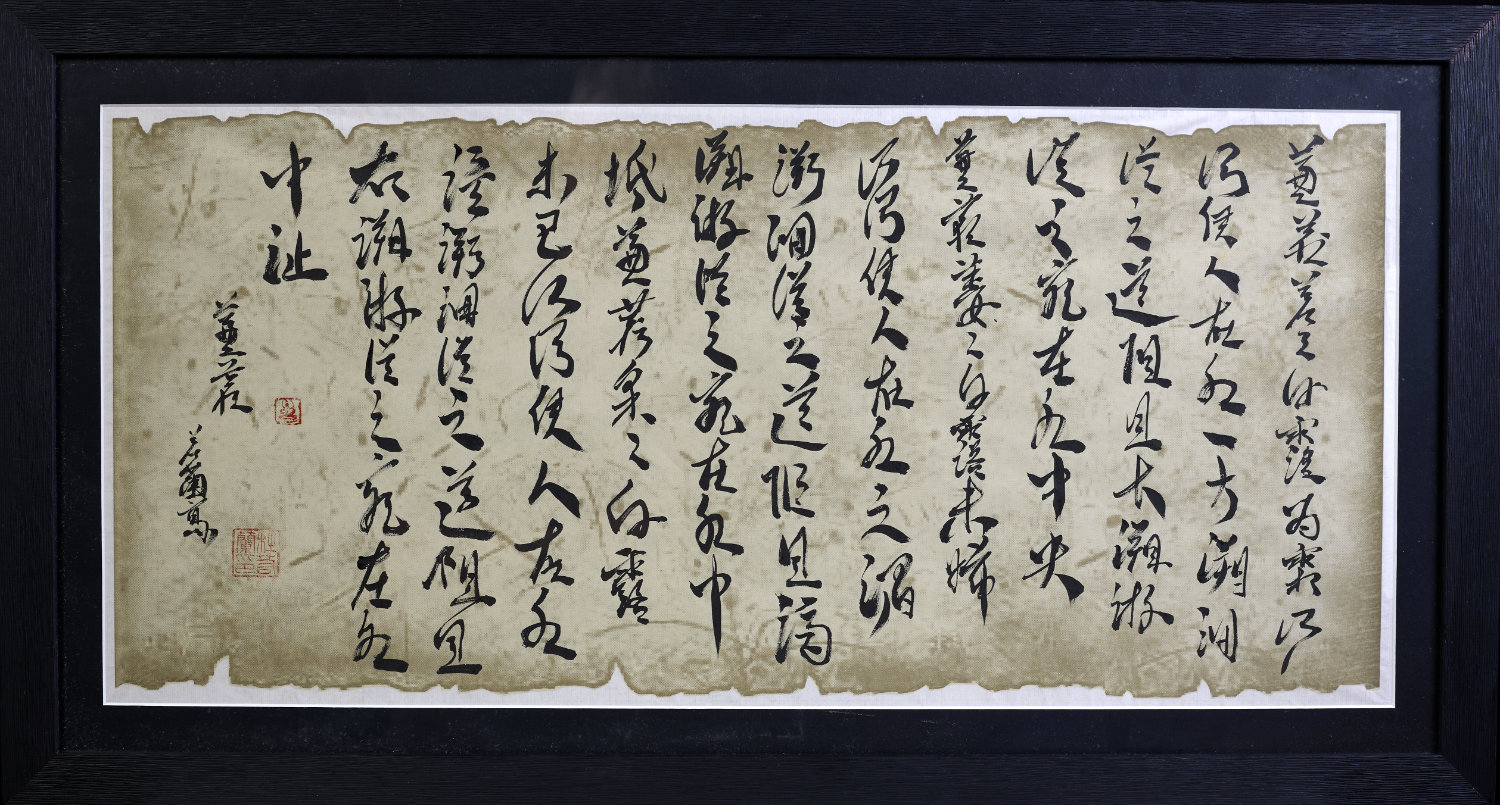 蒹葭苍之白露为霜所
谓伊人在水一方溯洄
从之道阻且长溯游
从之宛在水中央
蒹葭萋々白露未晞
所谓伊人在水之湄
溯洄从之道阻且跻
溯游从之宛在水中
坻蒹葭采々白露
未已所谓伊人在水
涘溯洄从之道阻且
右溯游从之宛在水
中沚
蒹葭